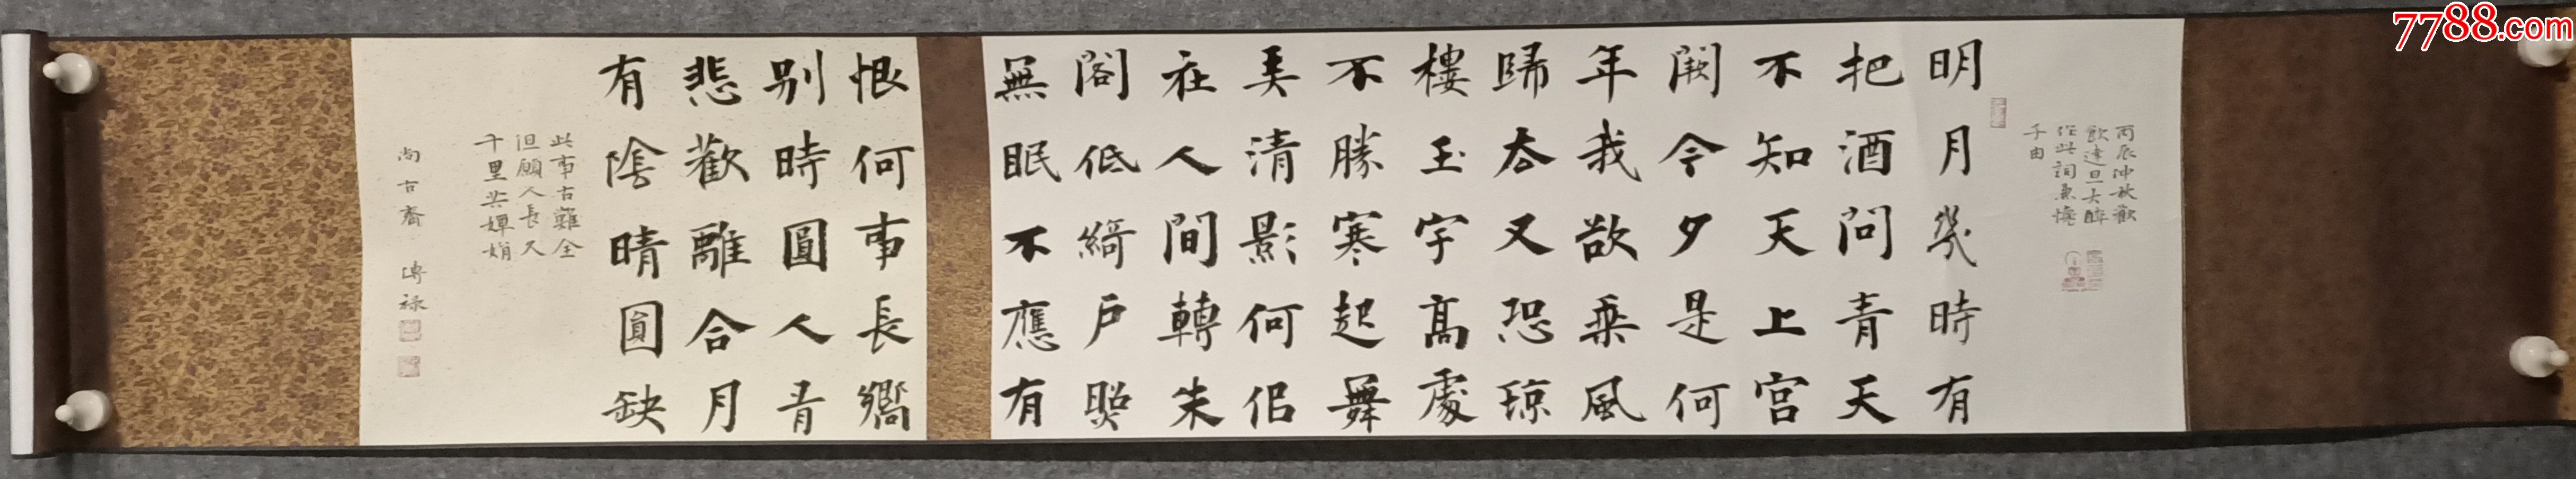 7788.com
丙辰仲秋歡
飲達旦大醉
作此詞兼懷
子由
明月幾時有
把酒問青天
不知天上宮
闕今夕是何
年我欲乘風
歸去又恐琼
樓玉宇高處
不勝寒起舞
弄清影何似
在人間轉朱
閣低綺戶照
無眠不應有
恨何事長嚮
別時圓人有
悲歡離合月
有陰晴圓缺
此事古難全
但願人長久
千里共嬋娟
尚古齋 傳祿